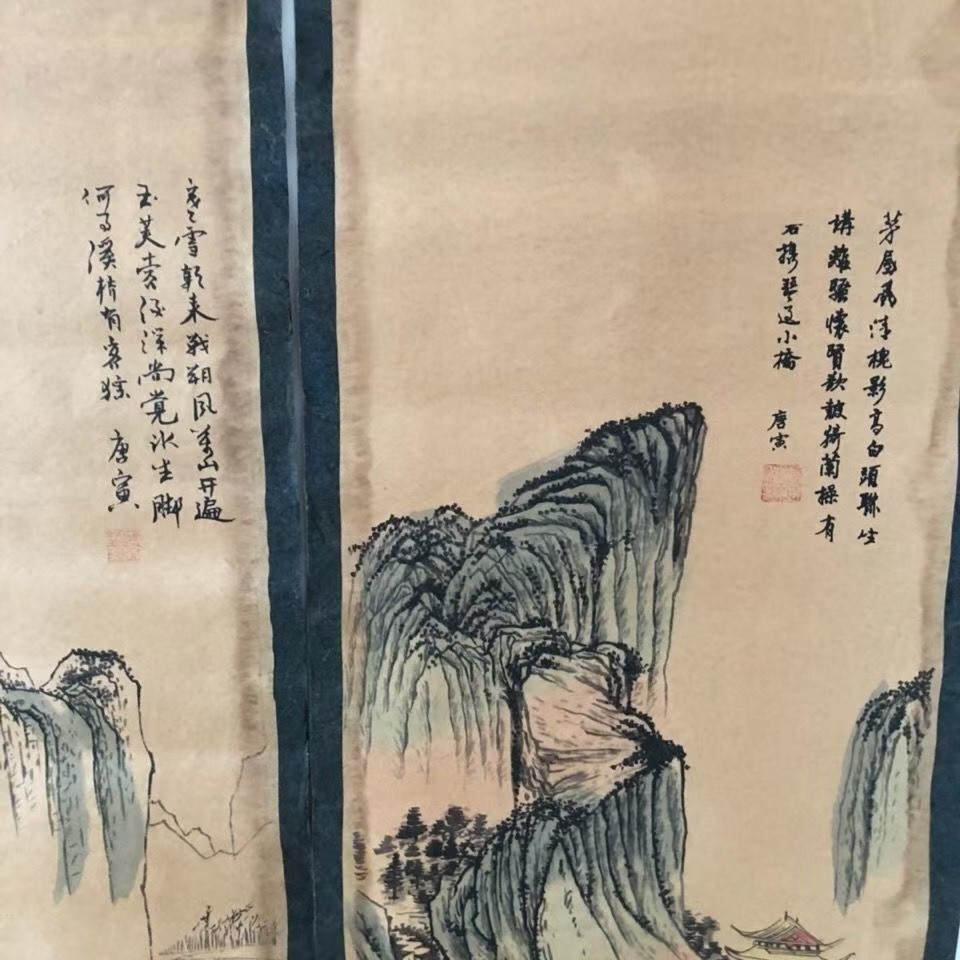 茅屋風清槐影高白頭聯坐
講離騷懷賢欲鼓猗蘭操有
石携琴過小橋
唐寅
雪乾來戰朔風萬山開遍
玉芙蓉夜深尚覺冰生脚
何事溪橋有客踪 唐寅